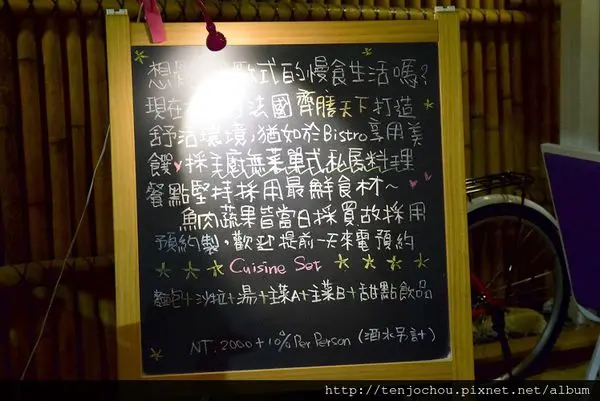 想 歐式的慢食生活嗎?
現在 法國齊膳天下打造
舒活環境,猶如於Bistro享用美
饌,採主廚無菜單式私房料理
餐點堅持採用最鮮食材~
魚肉蔬果皆當日採買故採用
預約製,歡迎提前一天來電預約
Cuisine Set
麵包+沙拉+湯+主菜A+主菜B+甜點飲品
NT. 2000+10% Per Person (酒水另計)
http://tenjochou.pixnet.net/album